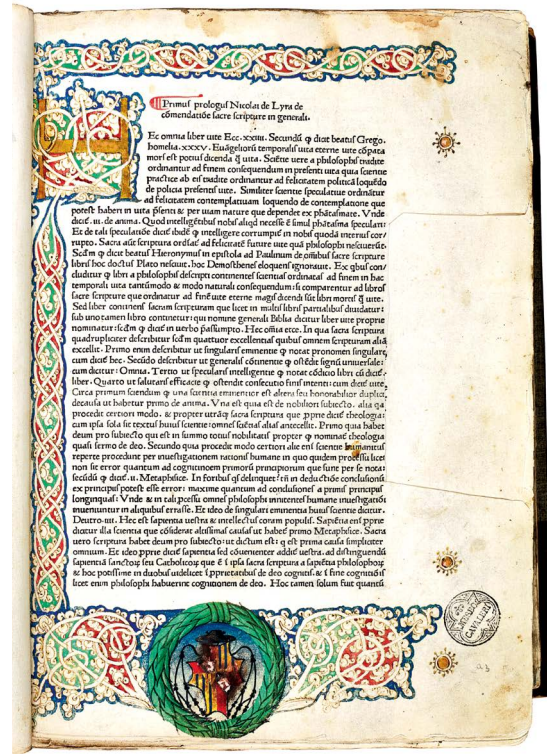 Primus prologus Nicolai de Lyra de
cōmendatiōe sacre scripture in generali.
Ec omnia liber uite Ecc. xxiiii. Secundū ꝙ dicit beatus Grego.
homelia. xxxv. Euāgeliorū temporalis uita eterne uite cōpata
mors est potius dicenda ꝗ̄ uita. Sciētie uere a philosophis tradite
ordinantur ad finem consequendum in presenti uita quia scientie
practice ab eis tradite ordinantur ad felicitatem politicā loquēdo
de policia presentis uite. Similiter scientie speculatiue ordinātur
ad felicitatem contemplatiuam loquendo de contemplatione que
potest haberi in uita pn̄senti & per uiam nature que dependet ex phātasmate. Vnde
dicit̄ .iii. de anima. Quod intelligētibus nobis aliqd necesse ē simul phātasma speculari:
Et de tali speculatiōe dicit̄ ibidē ꝙ intelligere corrumpit̄ in nobis quodā interius cor/
rupto. Sacra aūt scriptura ordīat̄ ad felicitatē future uite quā philosophi nescierūt.
Scd̄m ꝙ dicit beatus Hieronymus in epistola ad Paulinum de oībus sacre scripture
libris hoc doctus Plato nesciuit. hoc Demosthenes eloquens ignorauit. Ex qbus con/
cluditur ꝙ libri a philosophis descripti continentes scientias ordinatas ad finem in hac
temporali uita tantūmodo & modo naturali consequendum: si comparentur ad libros
sacre scripture que ordinatur ad finē uite eterne magis dicendi sūt libri mortis ꝗ̄ uite.
Sed liber continens sacram scripturam que licet in multis libris partialibus diuidatur:
sub uno tamen libro continetur: qui nomine generali Biblia dicitur liber uite proprie
nominatur: scd̄m ꝙ dicit̄ in uerbo p̄assumpto. Hec omnia etce. In qua sacra scriptura
quadrupliciter describitur scd̄m quattuor excellentias quibus omnem scripturam aliā
excellit. Primo enim describitur ut singularis eminentie ꝙ notat pronomen singulare,
cum dicit̄ hec. Secūdo describitur ut generalis cōtinentie ꝙ ostēdit signū uniuersale:
cum dicitur: Omnia. Tertio ut specularis intelligentie ꝙ notat̄ cōdicio libri cū dicit̄.
liber. Quarto ut salutaris efficacie ꝙ ostendit consecutio finis intenti: cum dicit̄ uite.
Circa primum sciendum ꝙ una scientia eminentior est altera seu honorabilior duplici,
decausa ut habetur primo de anima. Vna est quia est de nobiliori subiecto. alia qa
procedit certiori modo. & propter utrāq̄ sacra scriptura que p̄prie dicit̄ theologia:
cum ipsa sola sit textus huius scientie: omnes sciētias alias antecellit. Primo quia habet
deum pro subiecto: qui est in summo totius nobilitatis propter ꝙ nominat̄ theologia
quasi sermo de deo. Secundo quia procedit modo certiori alie eni scientie humanitus
reperte procedunt per inuestigationem rationis humane in quo quidem processu licet
non sit error quantum ad cognitionem primorū principiorum que sunt per se nota:
secūdū ꝙ dicit̄ .ii. Metaphisice. In foribus q̄s delinquet: tn̄ in deductiōe conclusionū
ex principiis potest esse error: maxime quantum ad conclusiones a primis principiis
longinquas: Vnde & in tali processu omnes philosophi innitentes humane inuestigatiōi
inueniuntur in aliquibus errasse. Et ideo de singulari eminentia huius scientie dicitur.
Deutro. iiii. Hec est sapientia uestra & intellectus coram populis. Sapiētia eni p̄prie
dicitur illa scientia que cōsiderat altissimas causas ut habet̄ primo Metaphisice. Sacra
uero scriptura habet deum pro subiecto: ut dictum est: q̄ est prima causa simpliciter
omnium. Et ideo p̄prie dicit̄ sapientia sed cōuenienter addit̄ uestra. ad distinguendū
sapientiā sanctoꝝ seu Catholicoꝝ que ē ī ipsa sacra scriptura a sapiētia philosophoꝝ
& hoc potissime in duobus uidelicet ī p̄prietatibus de deo cognitis. & ī fine cognitiōis
licet enim philosophi habuerint cognitionem de deo. Hoc tamen solum fuit quantū
MUSEO
CAVALERI